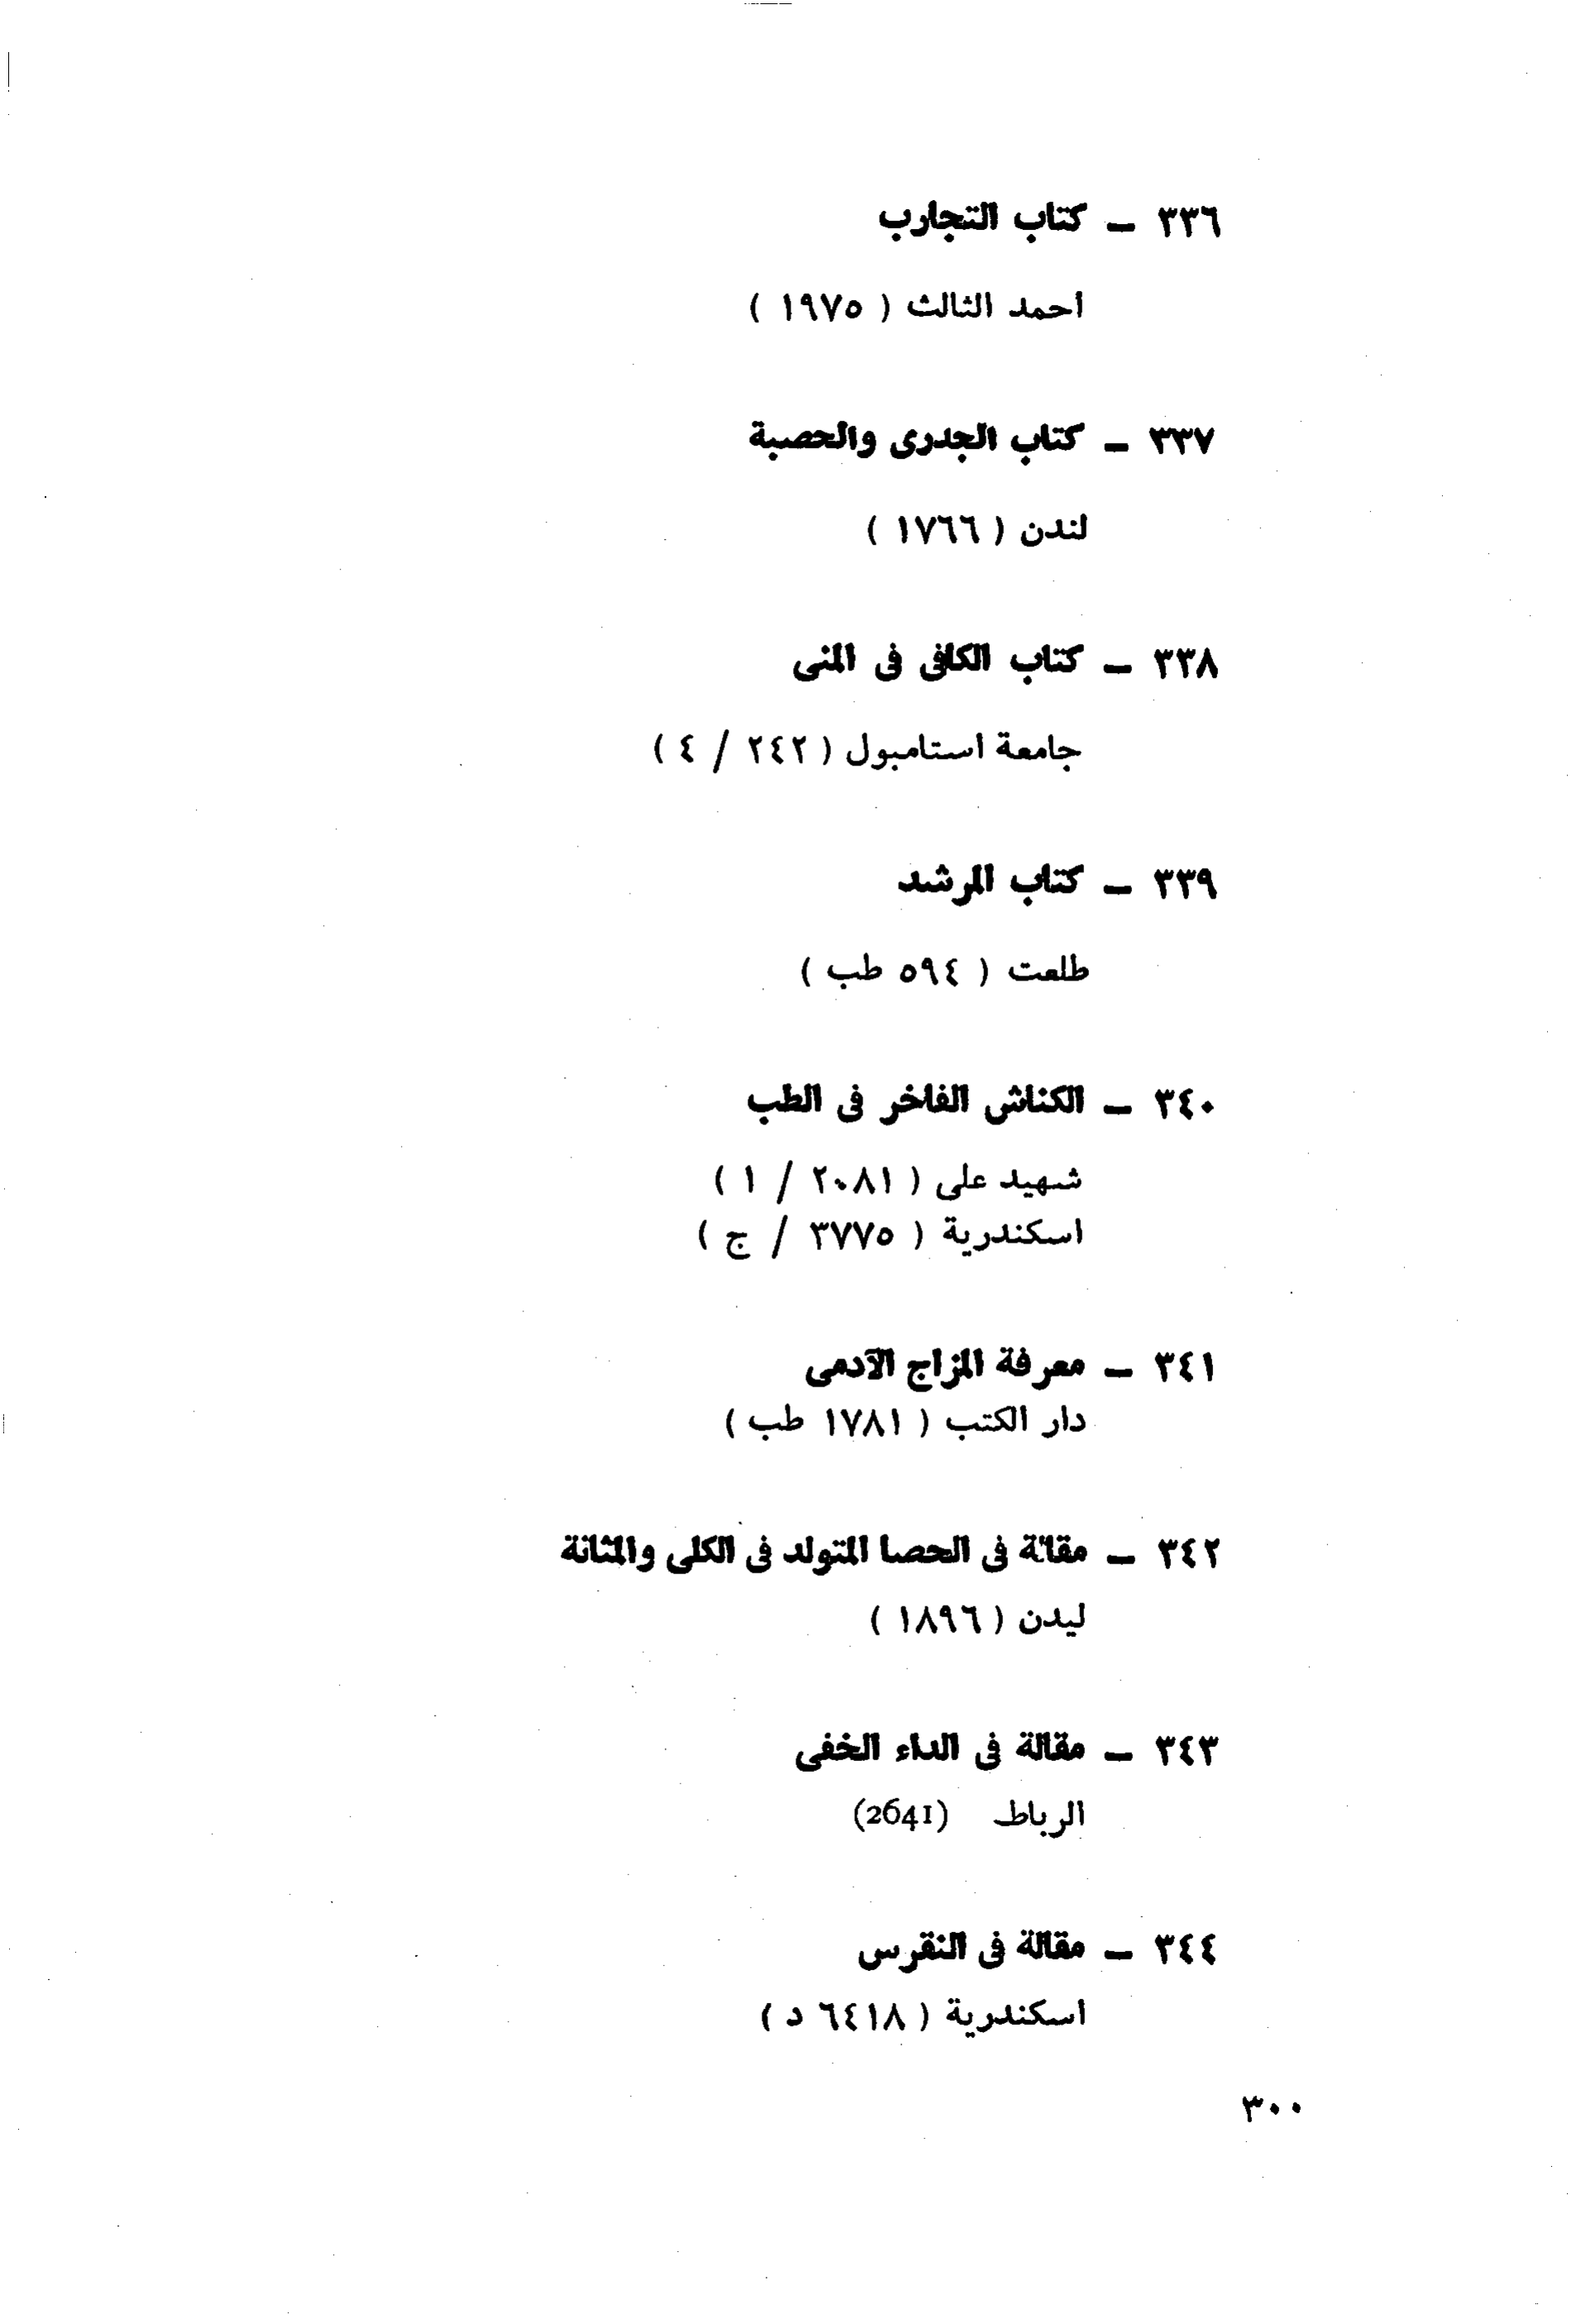 ٣٣٦ – كتاب التجارب
احمد الثالث ( ١٩٧٥ )
٣٣٧ – كتاب الجدرى والحصبة
لندن ( ١٧٦٦ )
٣٣٨ – كتاب الكافى فى المنى
جامعة استامبول ( ٢٤٢ / ٤ )
٣٣٩ – كتاب المرشد
طلعت ( ٥٩٤ طب )
٣٤٠ – الكناش الفاخر فى الطب
شهيد على ( ٢٠٨١ / ١ )
اسكندرية ( ٣٧٧٥ / ج )
٣٤١ – معرفة المزاج الآدمى
دار الكتب ( ١٧٨١ طب )
٣٤٢ – مقالة فى الحصا المتولد فى الكلى والمثانة
ليدن ( ١٨٩٦ )
٣٤٣ – مقالة فى الداء الخفى
الرباط (2641)
٣٤٤ – مقالة فى النقرس
اسكندرية ( ٦٤١٨ د )
٣٠٠